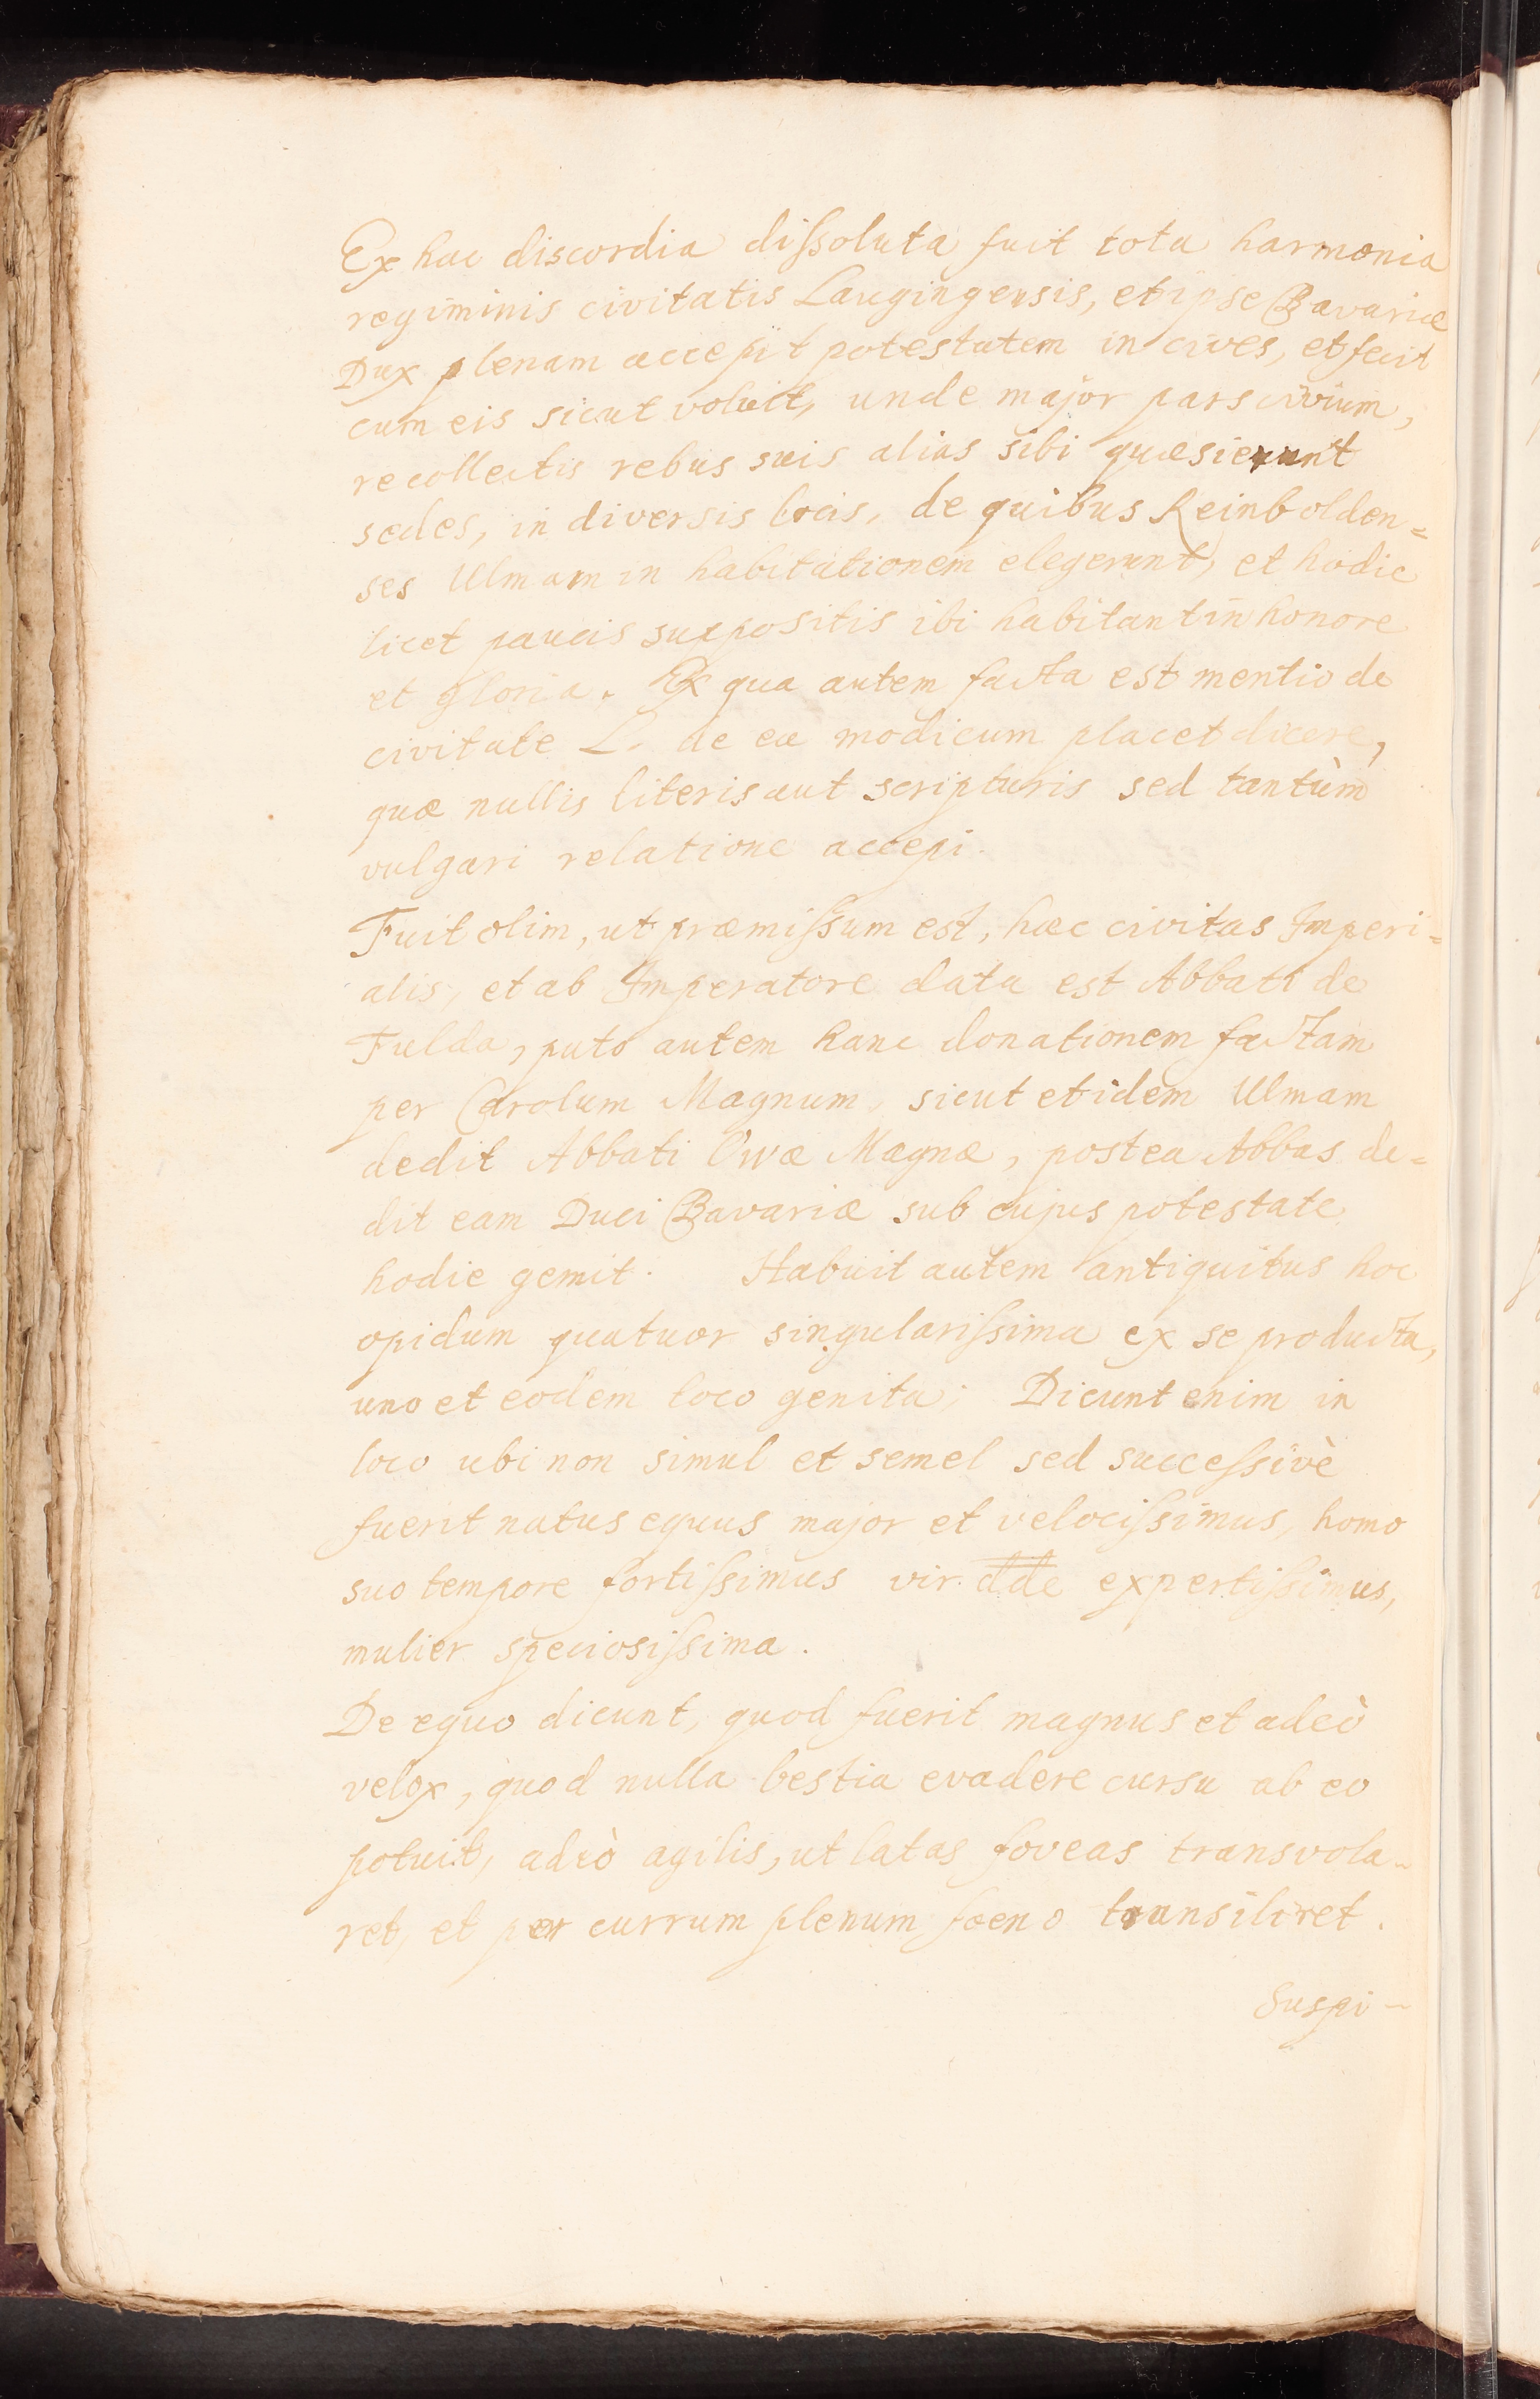 Ex hac discordia dissoluta fuit tota harmonia
regiminis civitatis Laugingensis, et ipse Bavariæ
Dux plenam accepit potestatem in cives, et fecit
cum eis sicut voluit, unde major pars civium,
recollectis rebus suis alias sibi quæsierunt
sedes, in diversis locis, de quibus Reinbolden=
ses Ulmam in habitationem elegerunt, et hodie
licet paucis suppositis ibi habitant in honore
et gloria. Ex qua autem facta est mentio de
civitate L. de ea modicum placet dicere,
quæ nullis literis aut scripturis sed tantùm
vulgari relatione accepi.
Fuit olim, ut præmissum est, hæc civitas Imperi=
alis, et ab Imperatore data est Abbati de
Fulda, puto autem hanc donationem factam
per Carolum Magnum, sicut et idem Ulmam
dedit Abbati Owæ Magnæ, postea Abbas de=
dit eam Duci Bavariæ sub cujus potestate
hodie gemit. Habuit autem antiquitus hoc
opidum quatuor singularissima ex se producta,
uno et eodem loco genita; Dicunt enim in
loco ubi non simul et semel sed successivè
fuerit natus equus major et velocissimus, homo
suo tempore fortissimus vir dde expertissimus,
mulier speciosissima.
De equo dicunt, quod fuerit magnus et adeò
velox, quod nulla bestia evadere cursu ab eo
potuit, adeò agilis, ut latas foveas transvola-
ret, et per currum plenum foeno transiliret.
Suspi-